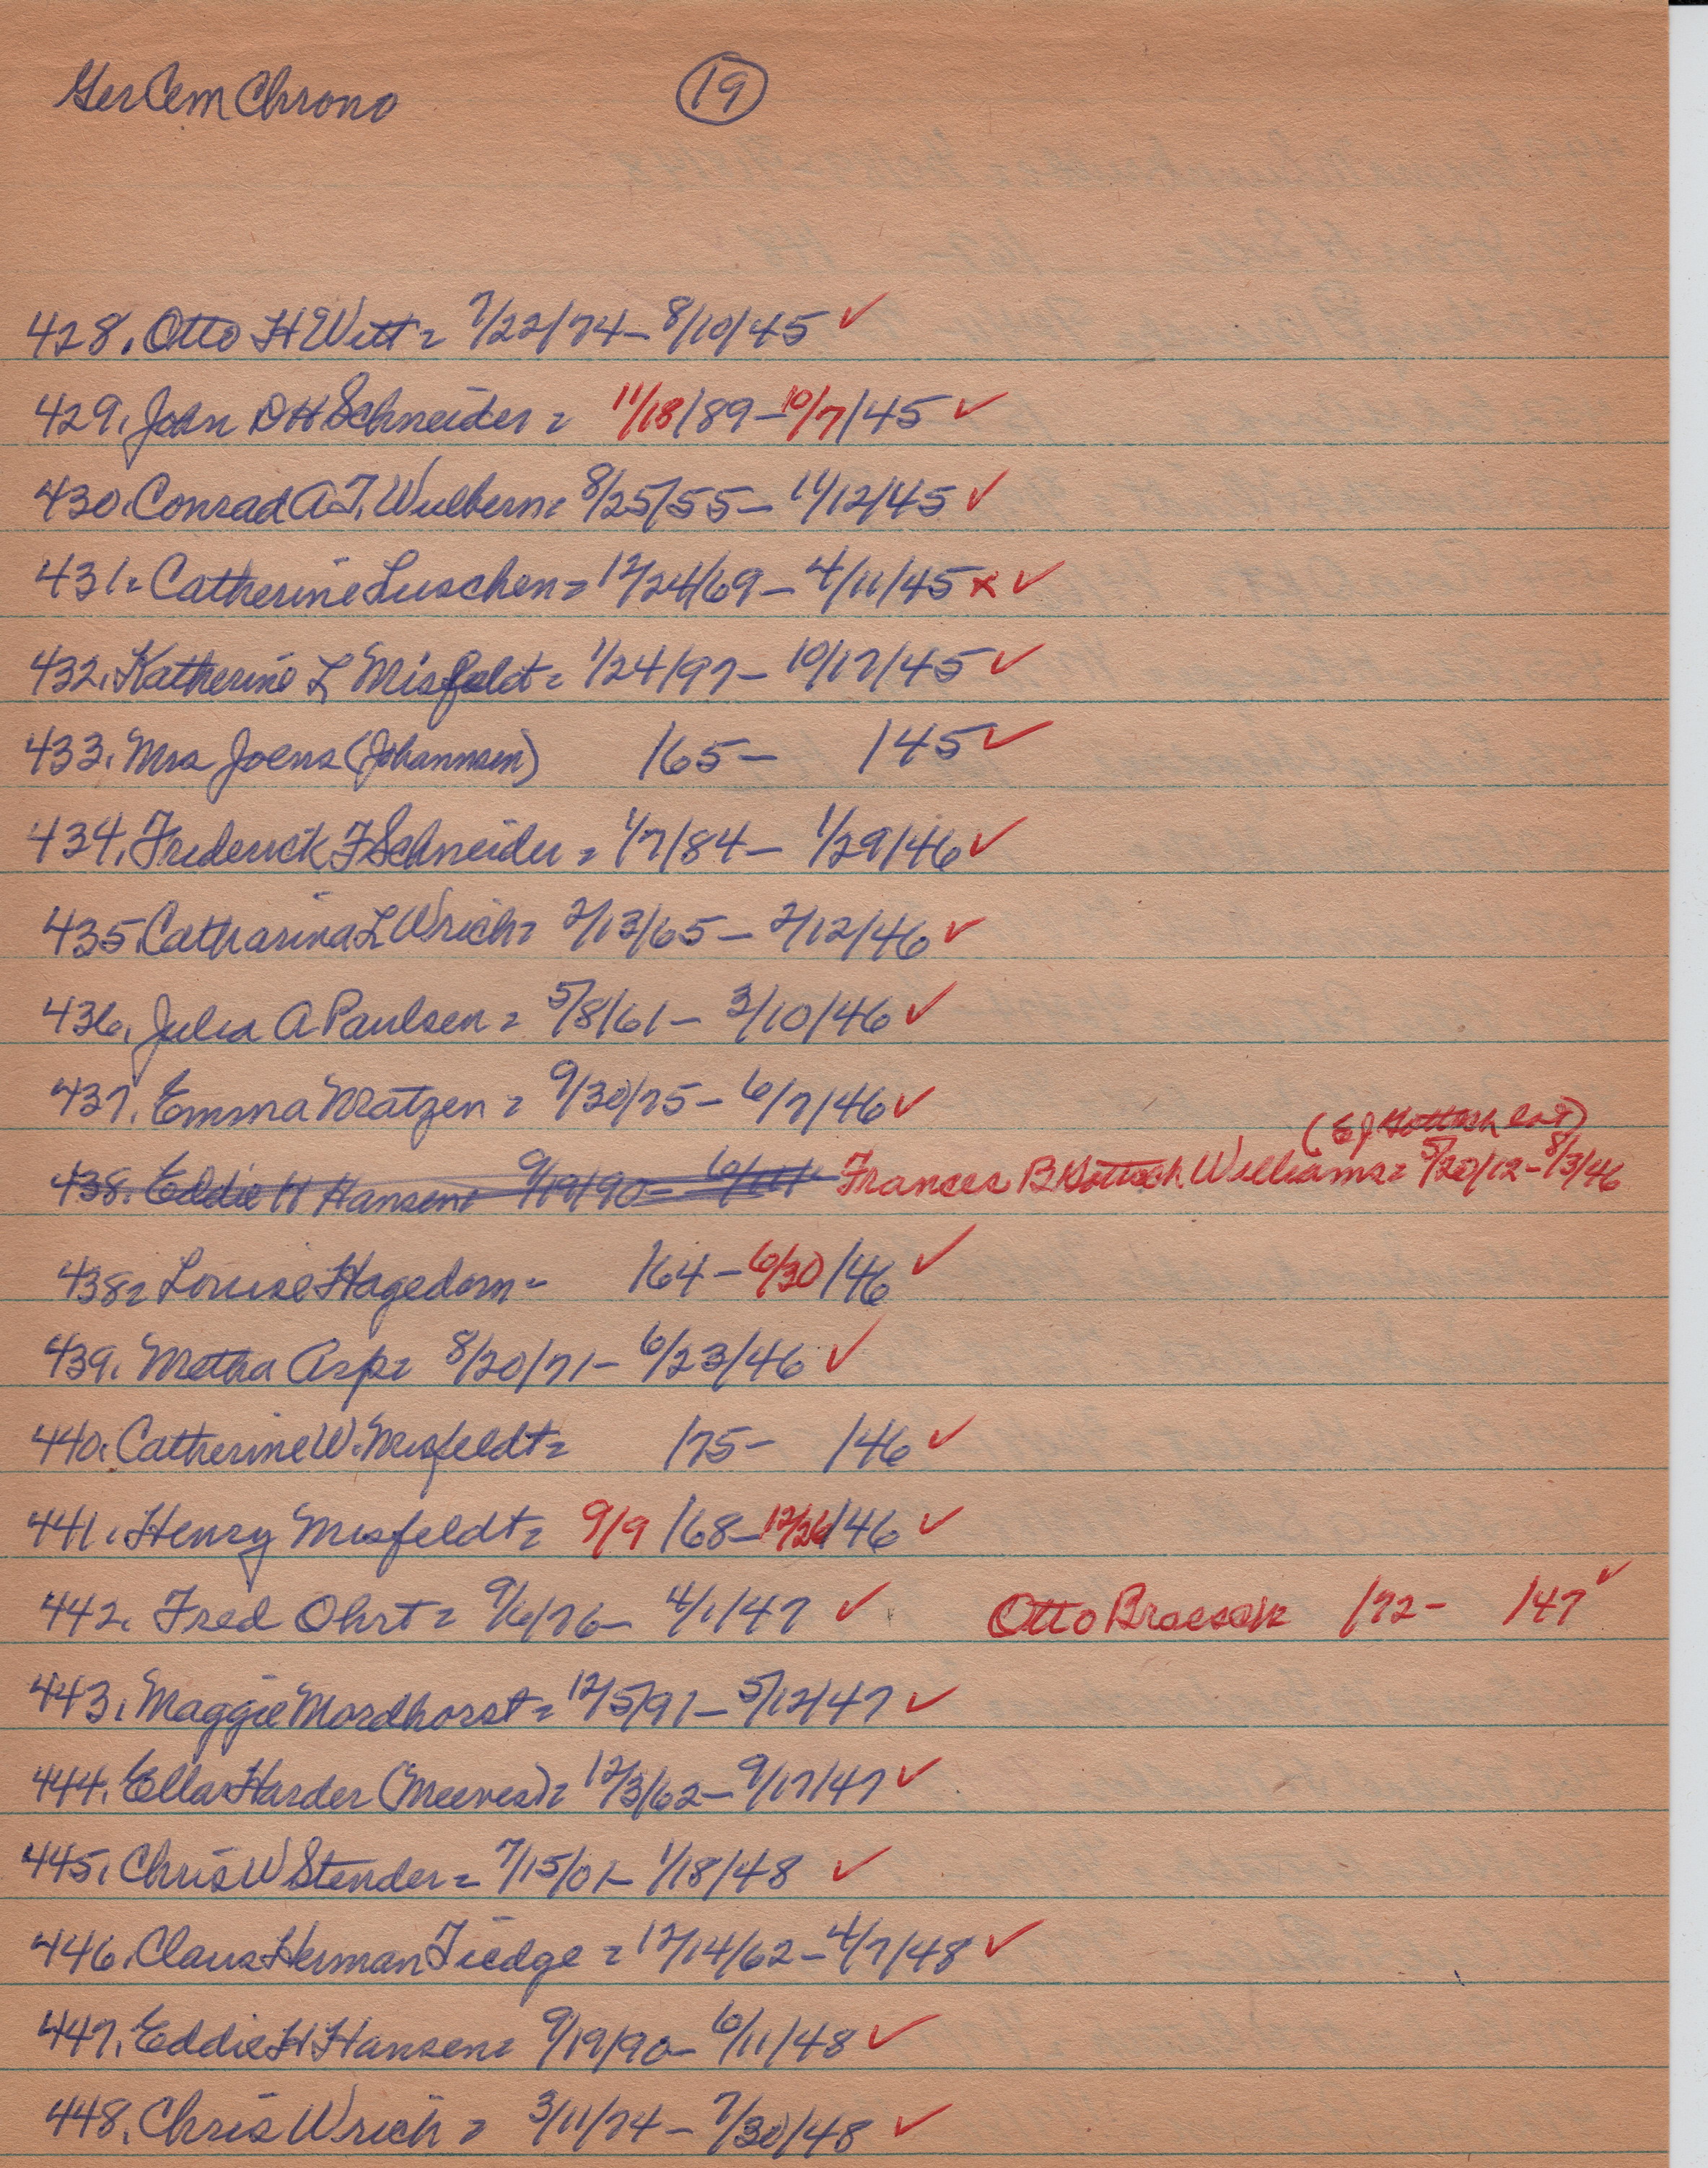 Ger Cem Chrono 19
428. Otto H Witt = 7/22/74 - 8/10/45 ✓
429. John D H Schneider = 11/18/89 - 10/7/45 ✓
430. Conrad A.F. Wulbern = 8/25/55 - 11/12/45 ✓
431. Catherine Luschen = 12/24/69 - 4/11/45 x ✓
432. Katherine L Misfeldt = 1/24/97 - 10/17/45 ✓
433. Mrs Joens (Johannsen) /65 - /45 ✓
434. Frederick F Schneider = 1/7/84 - 1/29/46 ✓
435 Catharina L Wrich = 2/13/65 - 2/12/46 ✓
436. Julia A Paulsen = 5/8/61 - 3/10/46 ✓
437. Emma Matzen = 9/30/75 - 6/7/46 ✓
(EJ Gottsch lot)
438. Eddie H Hansen = 9/19/90 - 6/11/ Frances B Gottsch Williams = 5/20/12 - 8/3/46
438 = Louise Hagedorn - /64 - 6/30/46 ✓
439. Metha Asp = 8/20/71 - 6/23/46 ✓
440. Catherine W. Misfeldt = /75 - /46 ✓
441. Henry Misfeldt = 9/9/68 - 12/26/46 ✓
442. Fred Ohrt = 9/6/76 - 4/1/47 ✓ Otto Braesch /72 - /47 ✓
443. Maggie Mordhorst = 12/5/91 - 5/12/47 ✓
444. Ella Harder (Meeves) = 12/3/62 - 9/17/47 ✓
445. Chris W Stender = 7/15/01 - 1/18/48 ✓
446. Claus Herman Tiedge = 12/14/62 - 4/7/48 ✓
447. Eddie H Hansen = 9/19/90 - 6/11/48 ✓
448. Chris Wrich = 3/11/74 - 7/30/48 ✓